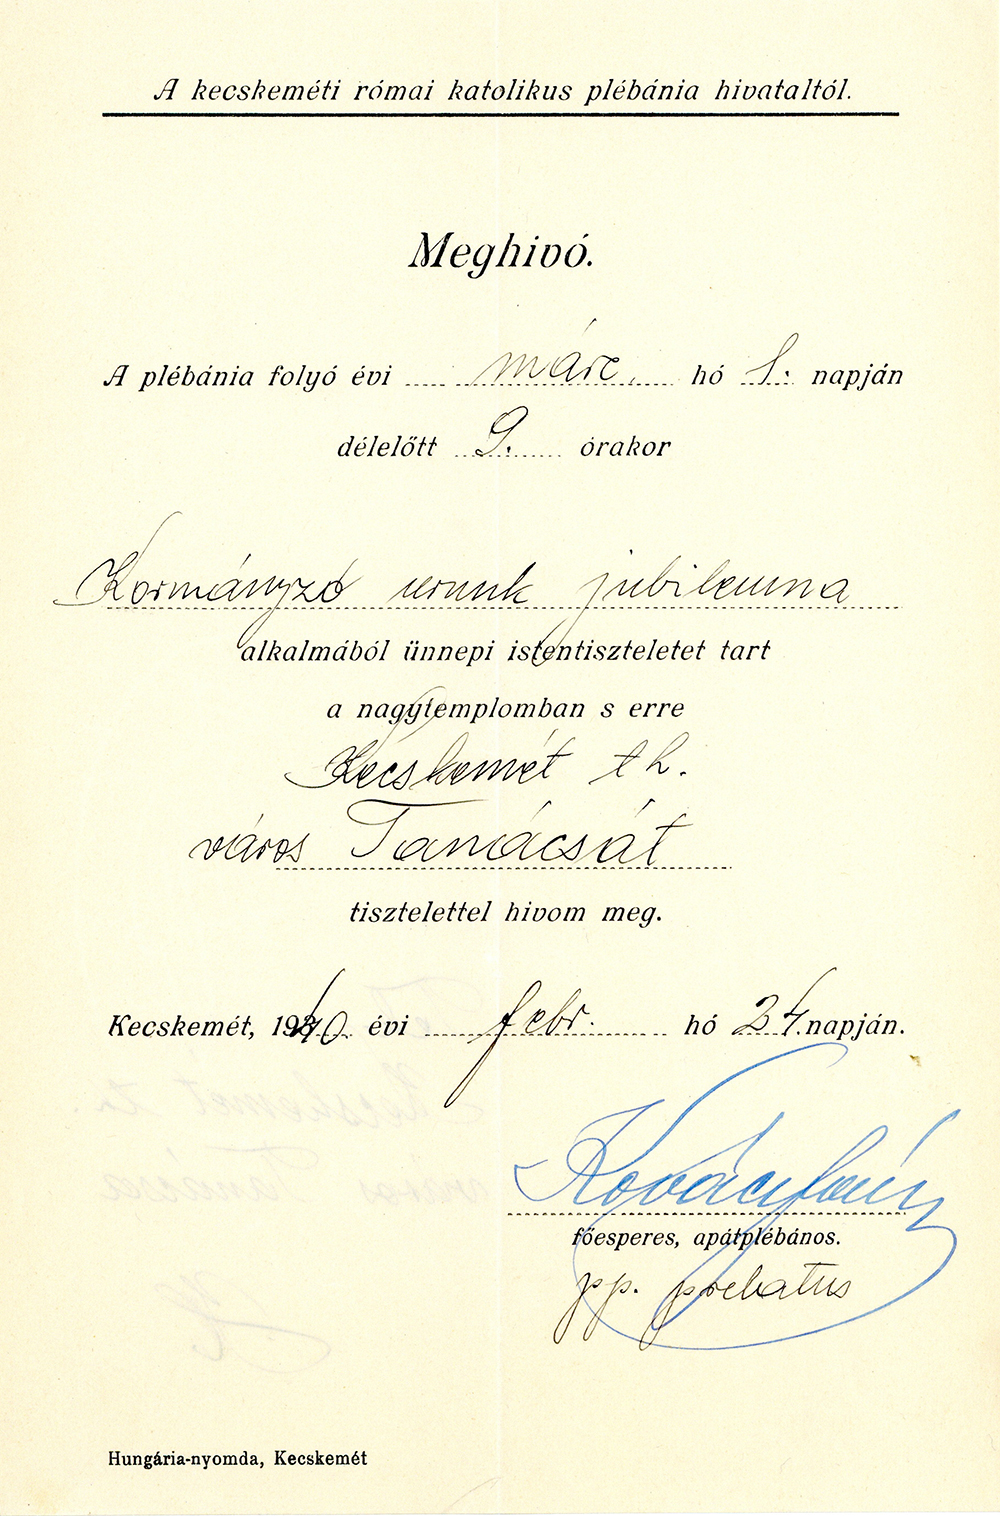 A kecskeméti római katolikus plébánia hivataltól.
Meghivó.
A plébánia folyó évi márc. hó 1. napján
délelőtt 9. órakor
Kormányzó urunk jubileuma
alkalmából ünnepi istentiszteletet tart
a nagytemplomban s erre
Kecskemét th.
város Tanácsát
tisztelettel hivom meg.
Kecskemét, 1940. évi febr. hó 24. napján.
Kovács
főesperes, apátplébános.
pp. prelatus
Hungária-nyomda, Kecskemét